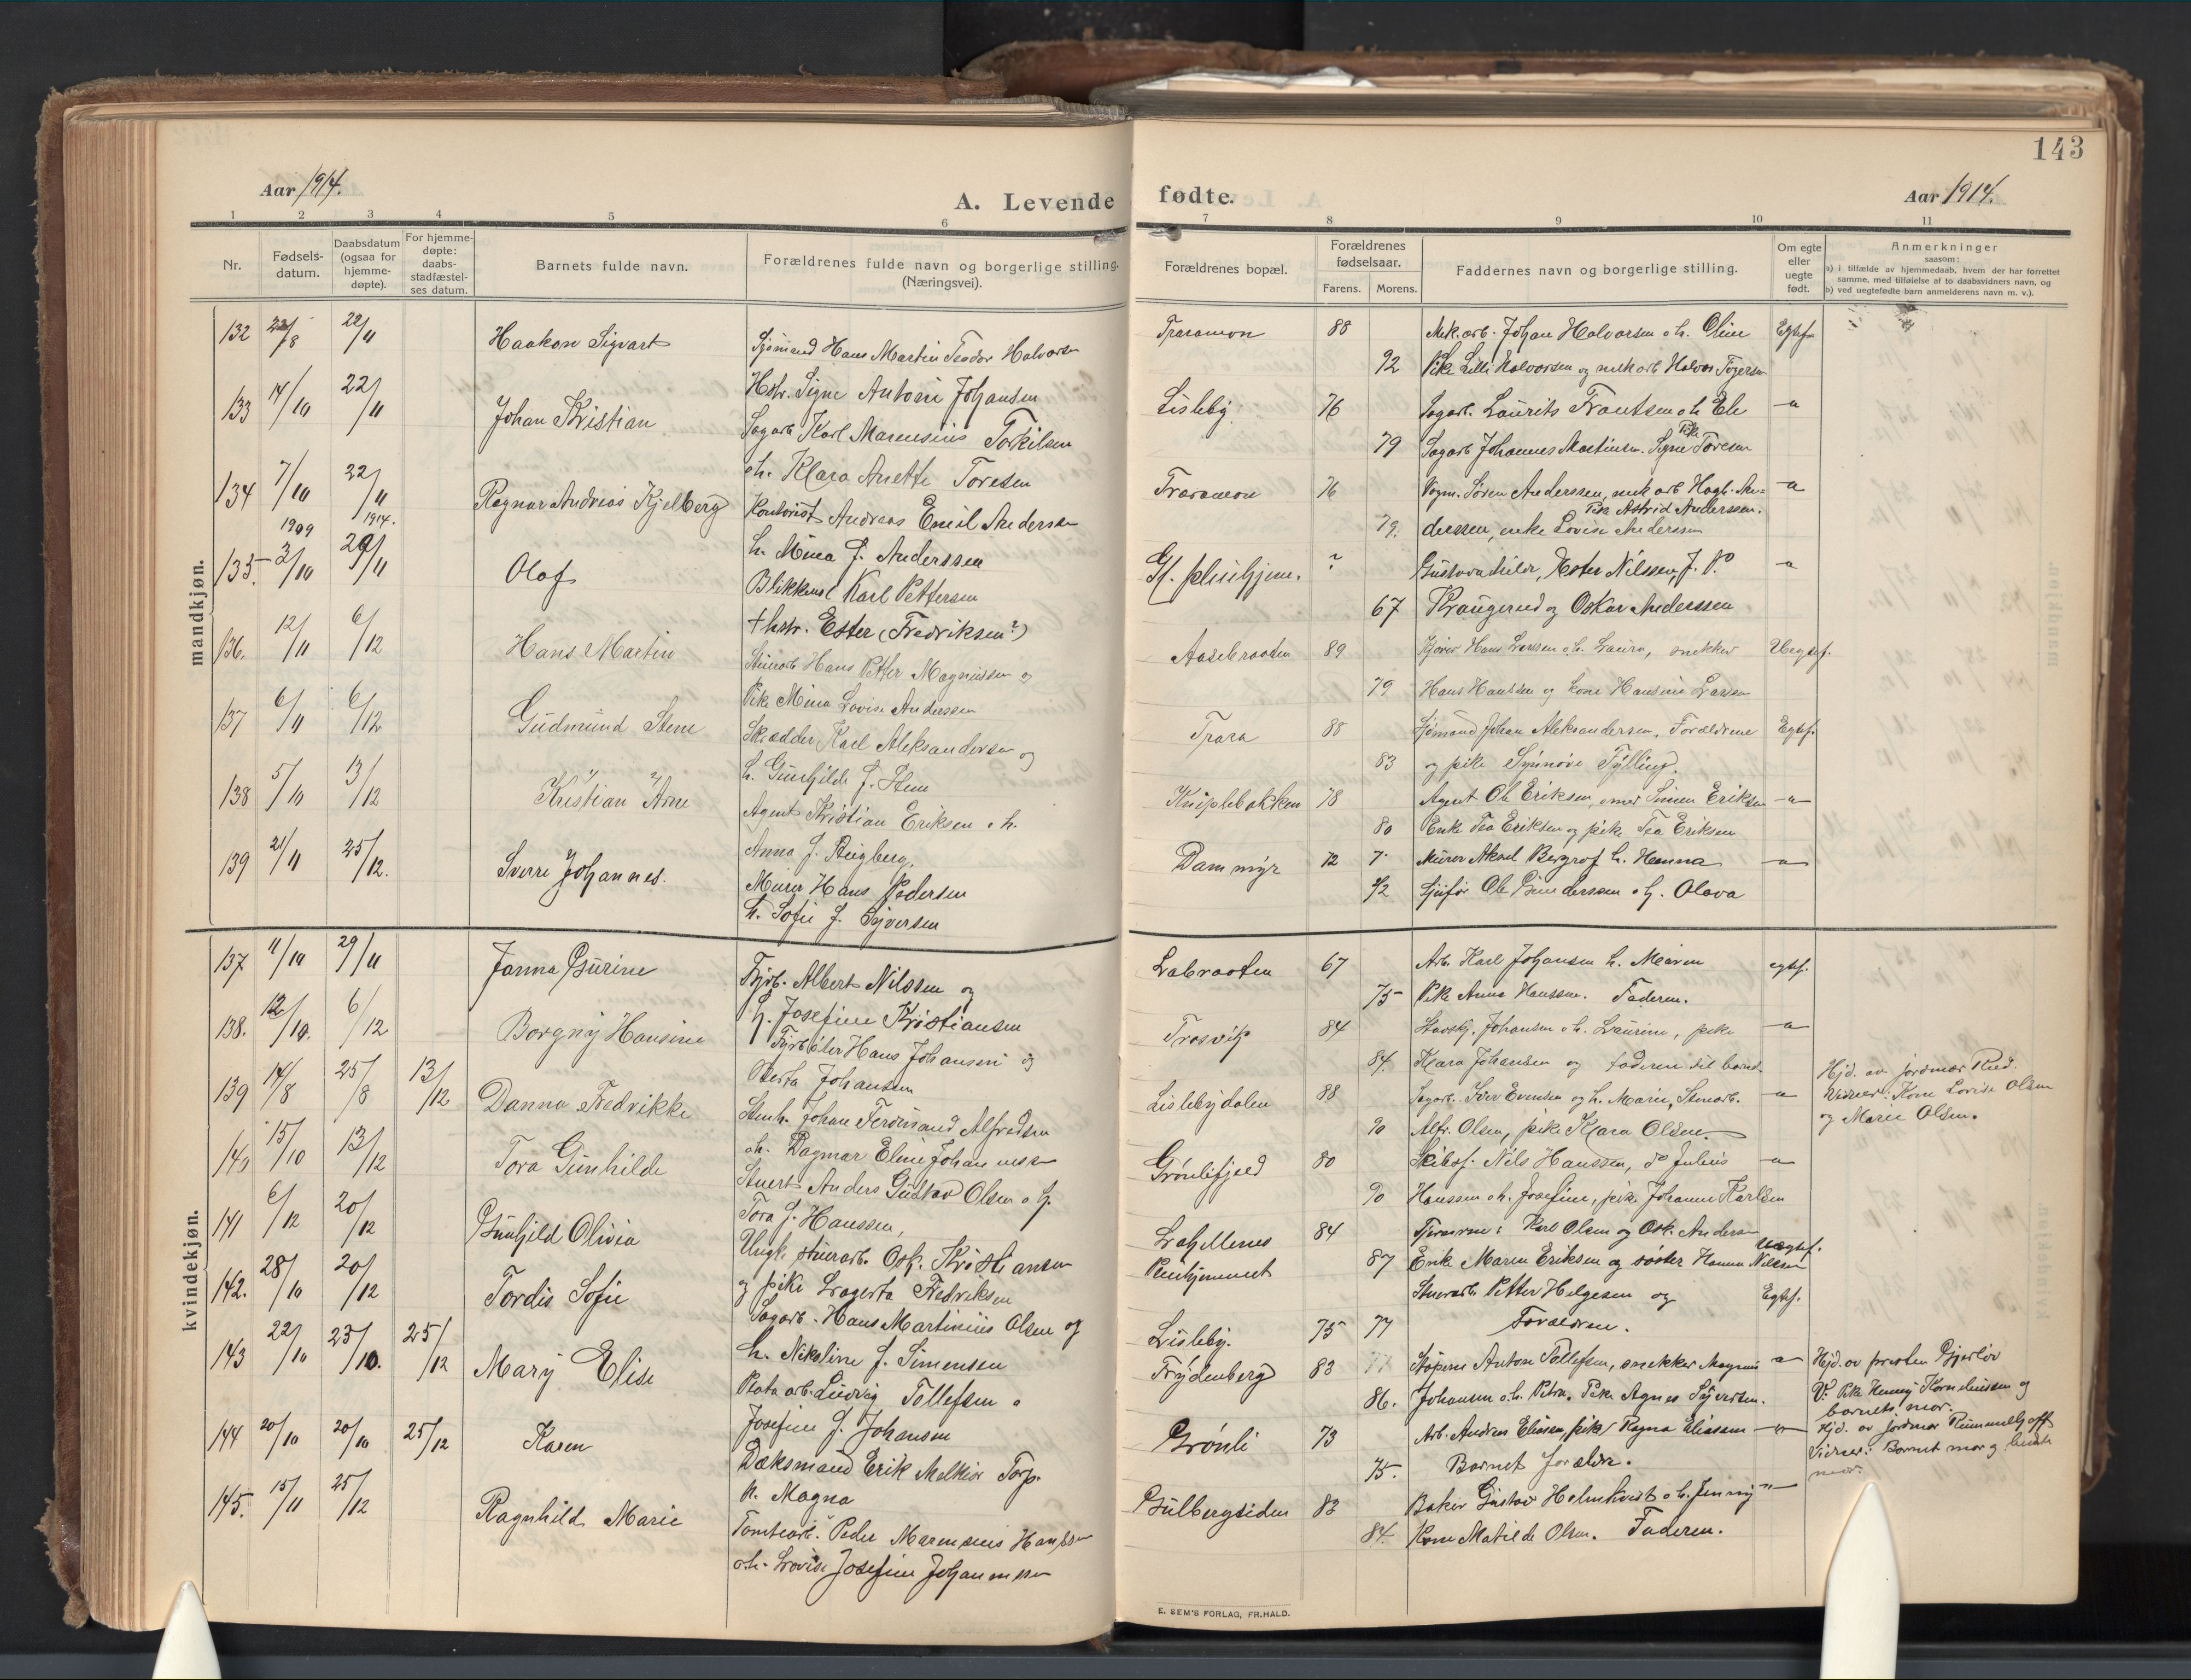 143
Aar 1914.
A. Levende fødte.
Aar 1914.
1 2 3 4 5 6 7 8 9 10 11
Nr.
Fødsels-
datum.
Daabsdatum
(ogsaa for
hjemme-
døpte).
For hjemme-
døpte:
daabs-
stadfæstel-
ses datum.
Barnets fulde navn.
Forældrenes fulde navn og borgerlige stilling.
(Næringsvei).
Forældrenes bopæl.
Forældrenes
fødselsaar.
Farens. Morens.
Faddernes navn og borgerlige stilling.
Om egte
eller
uegte
født.
Anmerkninger
saasom:
a) i tilfælde av hjemmedaab, hvem der har forrettet
samme, med tilføielse af to daabsvidners navn, og
b) ved uegtefødte barn anmelderens navn m. v.).
mandkjøn.
132 22/11 Haakon Sigvart
Sjømand Hans Martin Teodor Halvorsen
Hstr. Signe Antoni Johansen
Traramon 88
92
Mek.arb. Johan Halvorsen o h. Oline Egtef.
Pike Lilli Halvorsen og mek arb Halvor
133 14/10 22/11 Johan Kristian
Sagarb Karl Marensius Torkilsen
o h. Klara Anette Toresen
Lisleby 76
79
Sagarb. Laurits Frantsen o h Ele -"-
Sagarb Johannes Martinsen. Pike Signe Toresen
134 7/10 22/11 Ragnar Andreas Kjelberg
Kontorist Andreas Emil Andersen
h. Mina f. Anderssen
Traramon 76
79.
Vogm. Søren Anderssen, mek arb Hagb. An=
Pike Astrid Anderssen.
derssen, enke Lovise Anderssen
-"-
1909 1914.
135. 3/10 29/11 Olaf
Blikkensl Karl Pettersen
† hstr. Ester (Fredriksen?)
Gl. pleiehjem. ?
67
Gustava Ester Nilssen, J. P.
Krangerud og Oskar Anderssen
-"-
136. 12/11 6/12 Hans Martin
Stenarb Hans Petter Magnussen og
Pike Mina Lovise Anderssen
Aasebraaten 89
79
Kjører Hans Larssen o h. Laura, snekker Uegtef.
Hans Hanssen og kone Hansine Larssen
137 6/11 6/12 Gudmund Stene
Skrædder Karl Aleksandersen og
h. Gunhilde f. Stene
Trara 88
83
Sjømand Johan Aleksandersen, Forældrene Egtef.
og pike Synnøve Tylling.
138 5/10 13/12 Kristian Arne
Agent Kristian Eriksen o h.
Anna f.
Kniplebakken 78
80
Agent Ole Eriksen, Simen Eriksen -"-
Enke Tea Eriksen og pike Tea Eriksen
139 21/11 25/12. Sverre Johannes.
Murer Hans Pedersen
h. Sofie f. Syversen
Dammyr 72
Murer Aksel h. Hanna -"-
Ole Gunderssen o h. Olava
kvindekjøn.
137 11/10 29/11 Janna Gurine
Fyrb. Albert Nilssen og
h. Josefine Kristiansen
Labraaten 67
75
Arb. Karl Johansen h. Maren egtef.
Pike Anna Hanssen. Faderen.
138. 12/10. 6/12 Borgny Hansine
Fyrbøter Hans Johansen og
Berta Johansen
Trosvik 84
84.
Johansen o h. Laurine, pike -"-
Klara Johansen og faderen til barnet.
139 14/8 25/8 13/12 Danna Fredrikke
Stenh. Johan Ferdinand Alfredsen
o h. Dagmar Eline Johannesen
Lislebydalen 88
90
Sagarb. Iver Evensen og h. Marie, Stenarb. -"-
Alfr. Olsen, pike Klara Olsen.
Hjd. av jordmor Rud.
Vidner: Kone Lovise Olsen
og Marie Olsen.
140 15/10 13/12 Tora Gunhilde
Stuert Anders Gustav Olsen o h.
Tora f. Hanssen,
Grønlifjeld 80
90
Skibsf. Nils Hanssen, do Julius -"-
Hanssen o h. Josefine, pike Johanne Karlsen
141 6/12 20/12 Gunhild Olivia
Ungk. stuerarb. Osk. Kristiansen
og pike Lagerta Fredriksen
Lahellenes
Pleiehjemmet
84
87
Karl Olsen og Osk. Andersen
Uegtef.
Enke Maren Eriksen og søster Hanna Nilssen
142. 28/10 20/12 Tordis Sofie
Sagarb. Hans Martinius Olsen og
h. Nikoline f. Simensen
Lisleby. 75 77
Stuerarb Petter Helgesen og Egtef.
Forældrene.
143 22/10 23/10. 25/12 Mary Elise
Plata arb. Ludvig Tollefsen o
Josefine f. Johansen
Frydenberg 83
86.
Støperi Anton Tollefsen, snekker Magnus -"-
Johansen o h. Petra. Pike Agnes Syversen.
Hjd. av presten
V: Pike Henny Kornelliussen og
barnets mor.
144 20/10 20/10 25/12 Karen
Dæksmand Erik Melkior Torp.
h. Magna
Grønli 73
75.
Arb. Andreas Eliassen, pike Ragna Eliassen -"-
Barnets forældre.
Hjd. av jordmor Rummelhoff
Vidner: Barnets mor og
mor.
145. 15/11 25/12 Ragnhild Marie
Tomtearb. Peder Marensius Hanssen
o h. Lovise Josefine Johannessen
Gulbergsiden 83
84.
Baker Gustav Holmkvist o h. Jenny -"-
Kone Matilde Olsen. Faderen.
E. SEM'S FORLAG, FR.HALD.